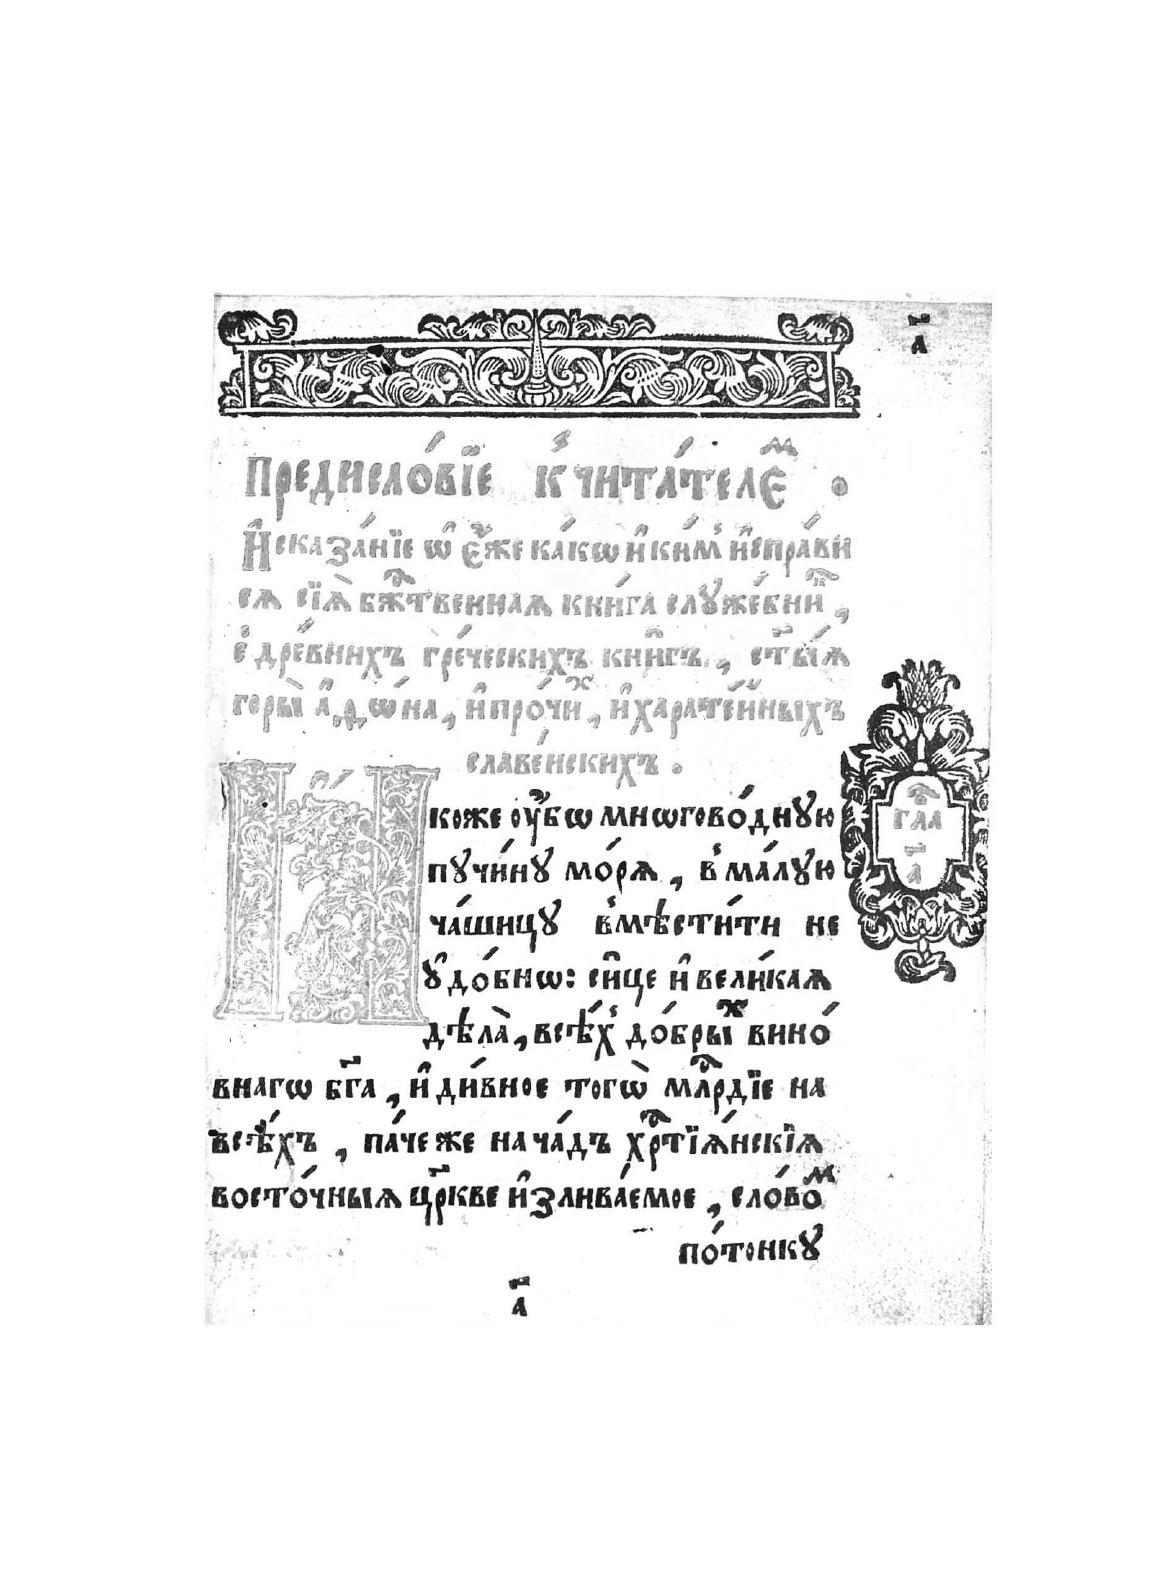 а҃
Предисло́вїе к̾ чита́телємъ.
И҆сказа́нїе ѡ҆ є҆́же ка́кѡ и҆ ки́м̾ и҆спра́ви
сѧ сїѧ̀ бж҇твеннаѧ кни́га слꙋже́бни,
с̾ дре́вних̾ гре́ческихъ кни҆гъ, ст҃ы́ѧ
горы̀ а҆ѳѡ́на, и҆ про́чих, и҆ харате́йныхъ
славе́нскихъ.
Ꙗ҆́коже ᲂу҆́бѡ мнѡгово́днꙋю
пꙋчи́нꙋ мо́рѧ, в̾ ма́лꙋю
ча́шицꙋ в̾мѣсти́ти не
ꙋдо́бнѡ: си́це и҆ вели́каѧ
дѣла̀, всѣ́х̾ до́брых вино́
внагѡ бг҃а, и҆ ди́вное тогѡ̀ млⷭ҇рдїе на
всѣ́хъ, па́че же на ча́дъ хрⷭ҇тїѧ́нскїѧ
восто́чныѧ цр҃кве и҆злива́емое, сло́вом
по́тонкꙋ
гл҃а
а҃
а҃